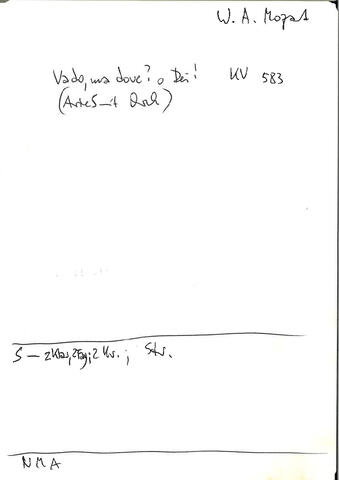 W. A. Mozart
Vado, ma dove? o Dei! KV 583
(Arie S mit Orch)
S – 2 Klar, 2 Fag; 2 Hr.; Str.
NMA